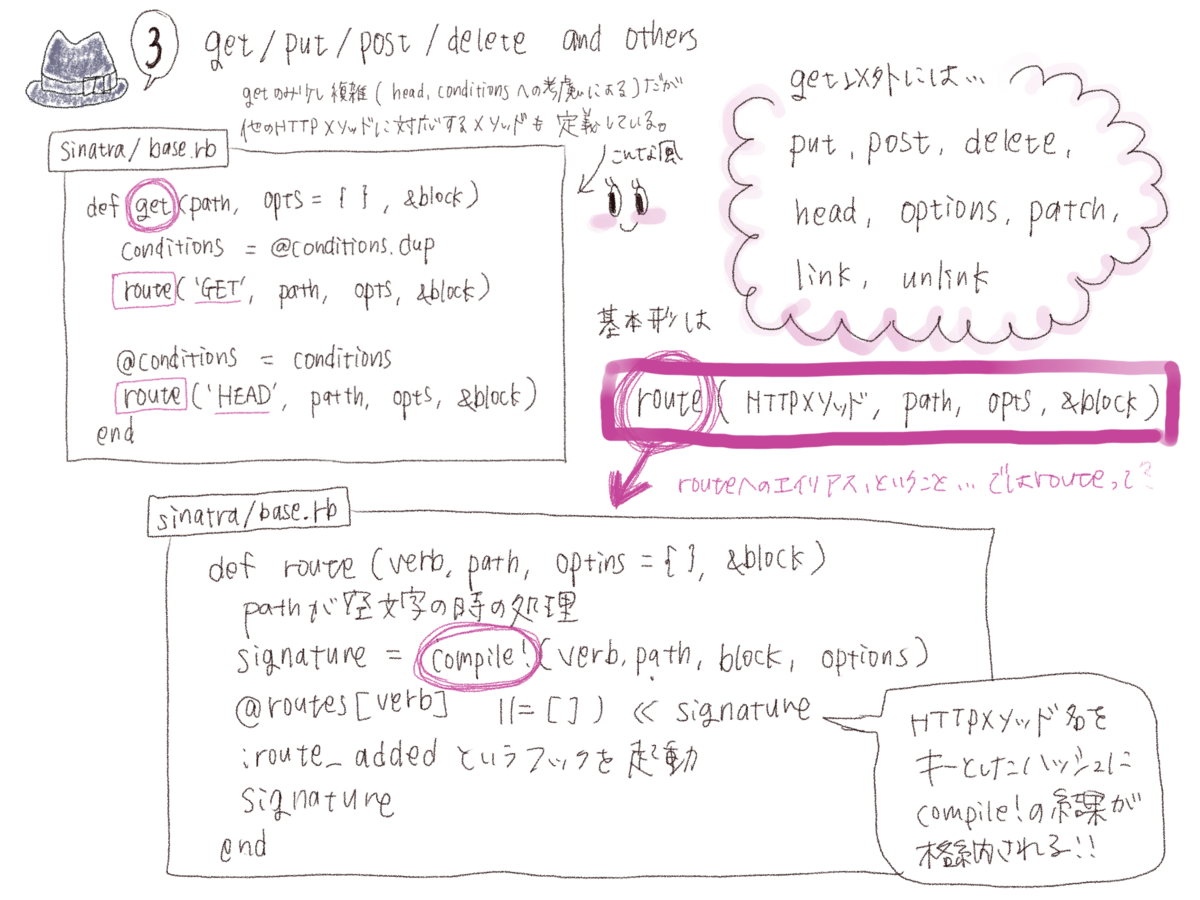 3 get / put / post / delete and others
getのみ少し複雑( head, conditionsへの考慮による)だが
他のHTTPメソッドに対応するメソッドも定義している。
こんな風
sinatra/base.rb
def get(path, opts = { }, &block)
conditions = @conditions.dup
route('GET', path, opts, &block)
@conditions = conditions
route('HEAD', patth, opts, &block)
end
get以外には…
put, post, delete,
head, options, patch,
link, unlink
基本形は
route( HTTPメソッド, path, opts, &block)
routeへのエイリアス、ということ… ではrouteって?
sinatra/base.rb
def route (verb, path, optins = { }, &block)
pathが空文字の時の処理
signature = compile!(verb, path, block, options)
@routes[verb] ||= [ ] ) << signature
:route_added というフックを起動
signature
end
HTTPメソッド名を
キーとしたハッシュに
compile!の結果が
格納される!!